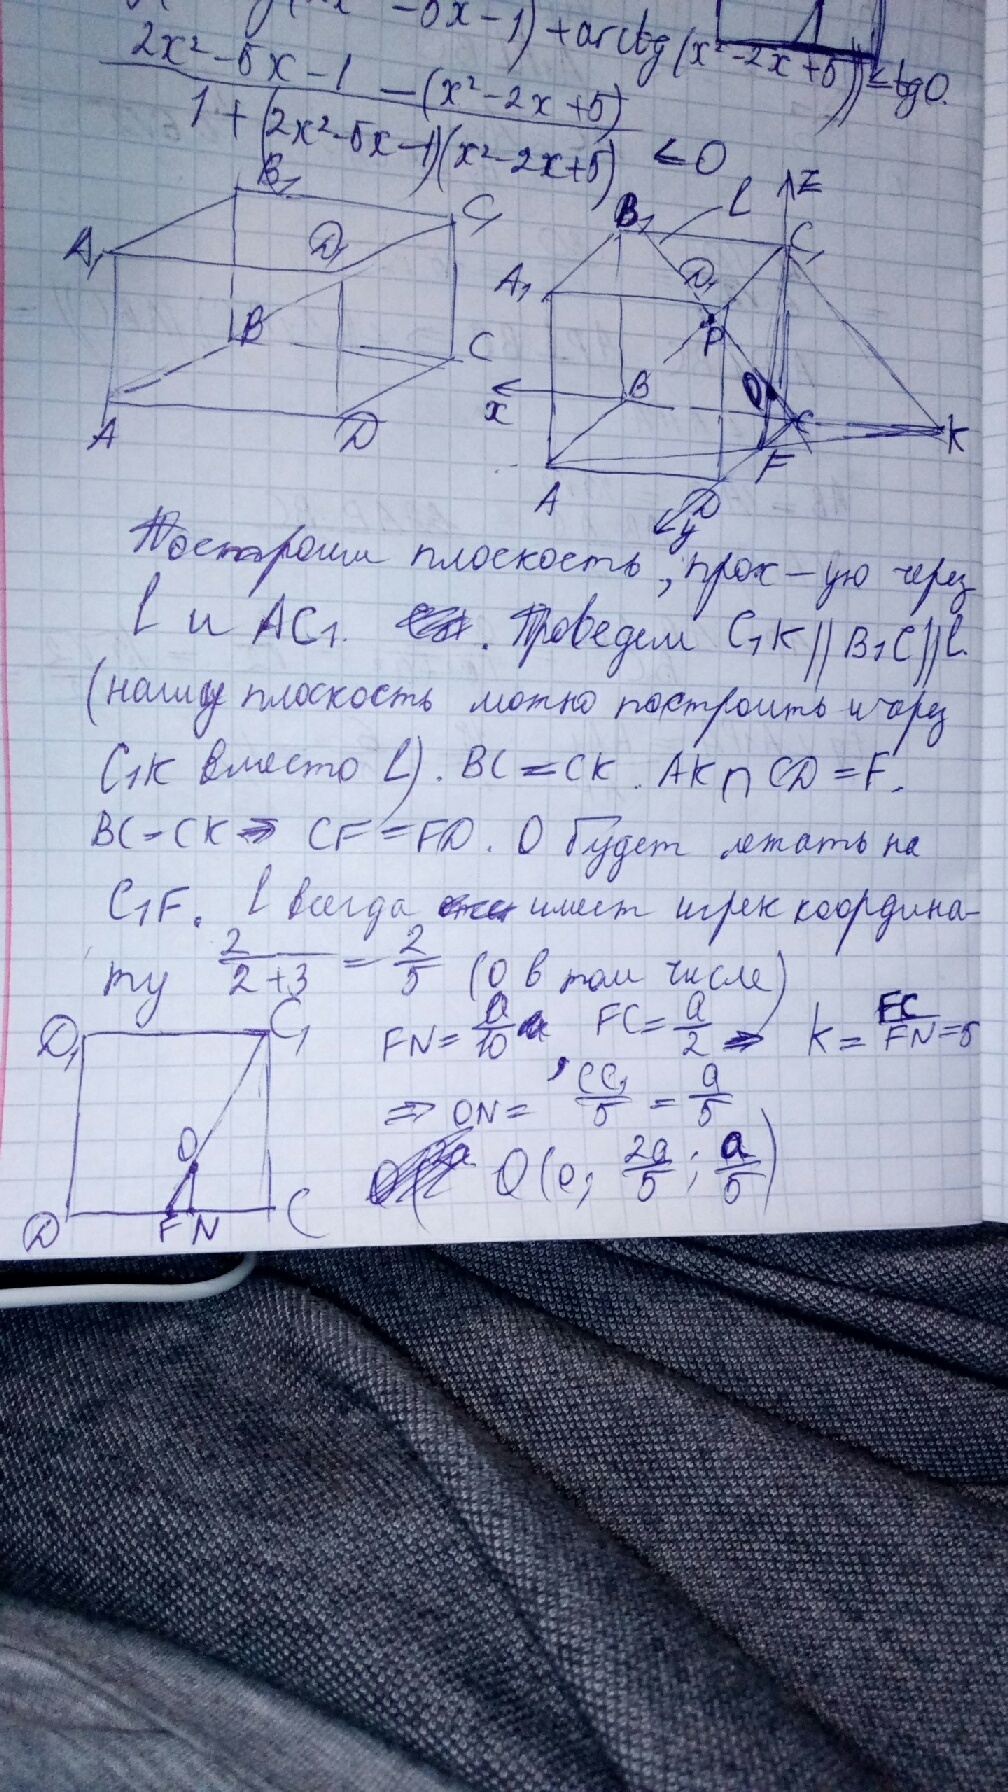 -5x-1)+arctg(x²-2x+5))≤tg0.
2x²-5x-1-(x²-2x+5)
1+(2x²-5x-1)(x²-2x+5) ≤0
B₁
C₁
A₁
D₁
B
C
A
D
B₁
l
z
C₁
A₁
D₁
P
B
O
x
C
K
F
A
D
y
Построим плоскость, прох-ую через
l и AC₁. Проведем C₁K||B₁C||l.
(нашу плоскость можно построить и через
C₁K вместо l). BC=CK. AK∩CD=F.
BC=CK⇒ CF=FD. O будет лежать на
C₁F. l всегда имеет игрек координа-
ту 2/2+3 = 2/5 (O в том числе)
FN=a/10, FC=a/2 ⇒ k=FC/FN=5
⇒ ON= CC₁/5 = a/5
O(0; 2a/5; a/5)
D₁
C₁
O
D
F N
C